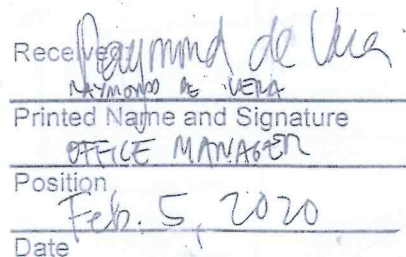 Received Raymond de Vera
RAYMOND DE VERA
Printed Name and Signature
OFFICE MANAGER
Position
Feb. 5, 2020
Date